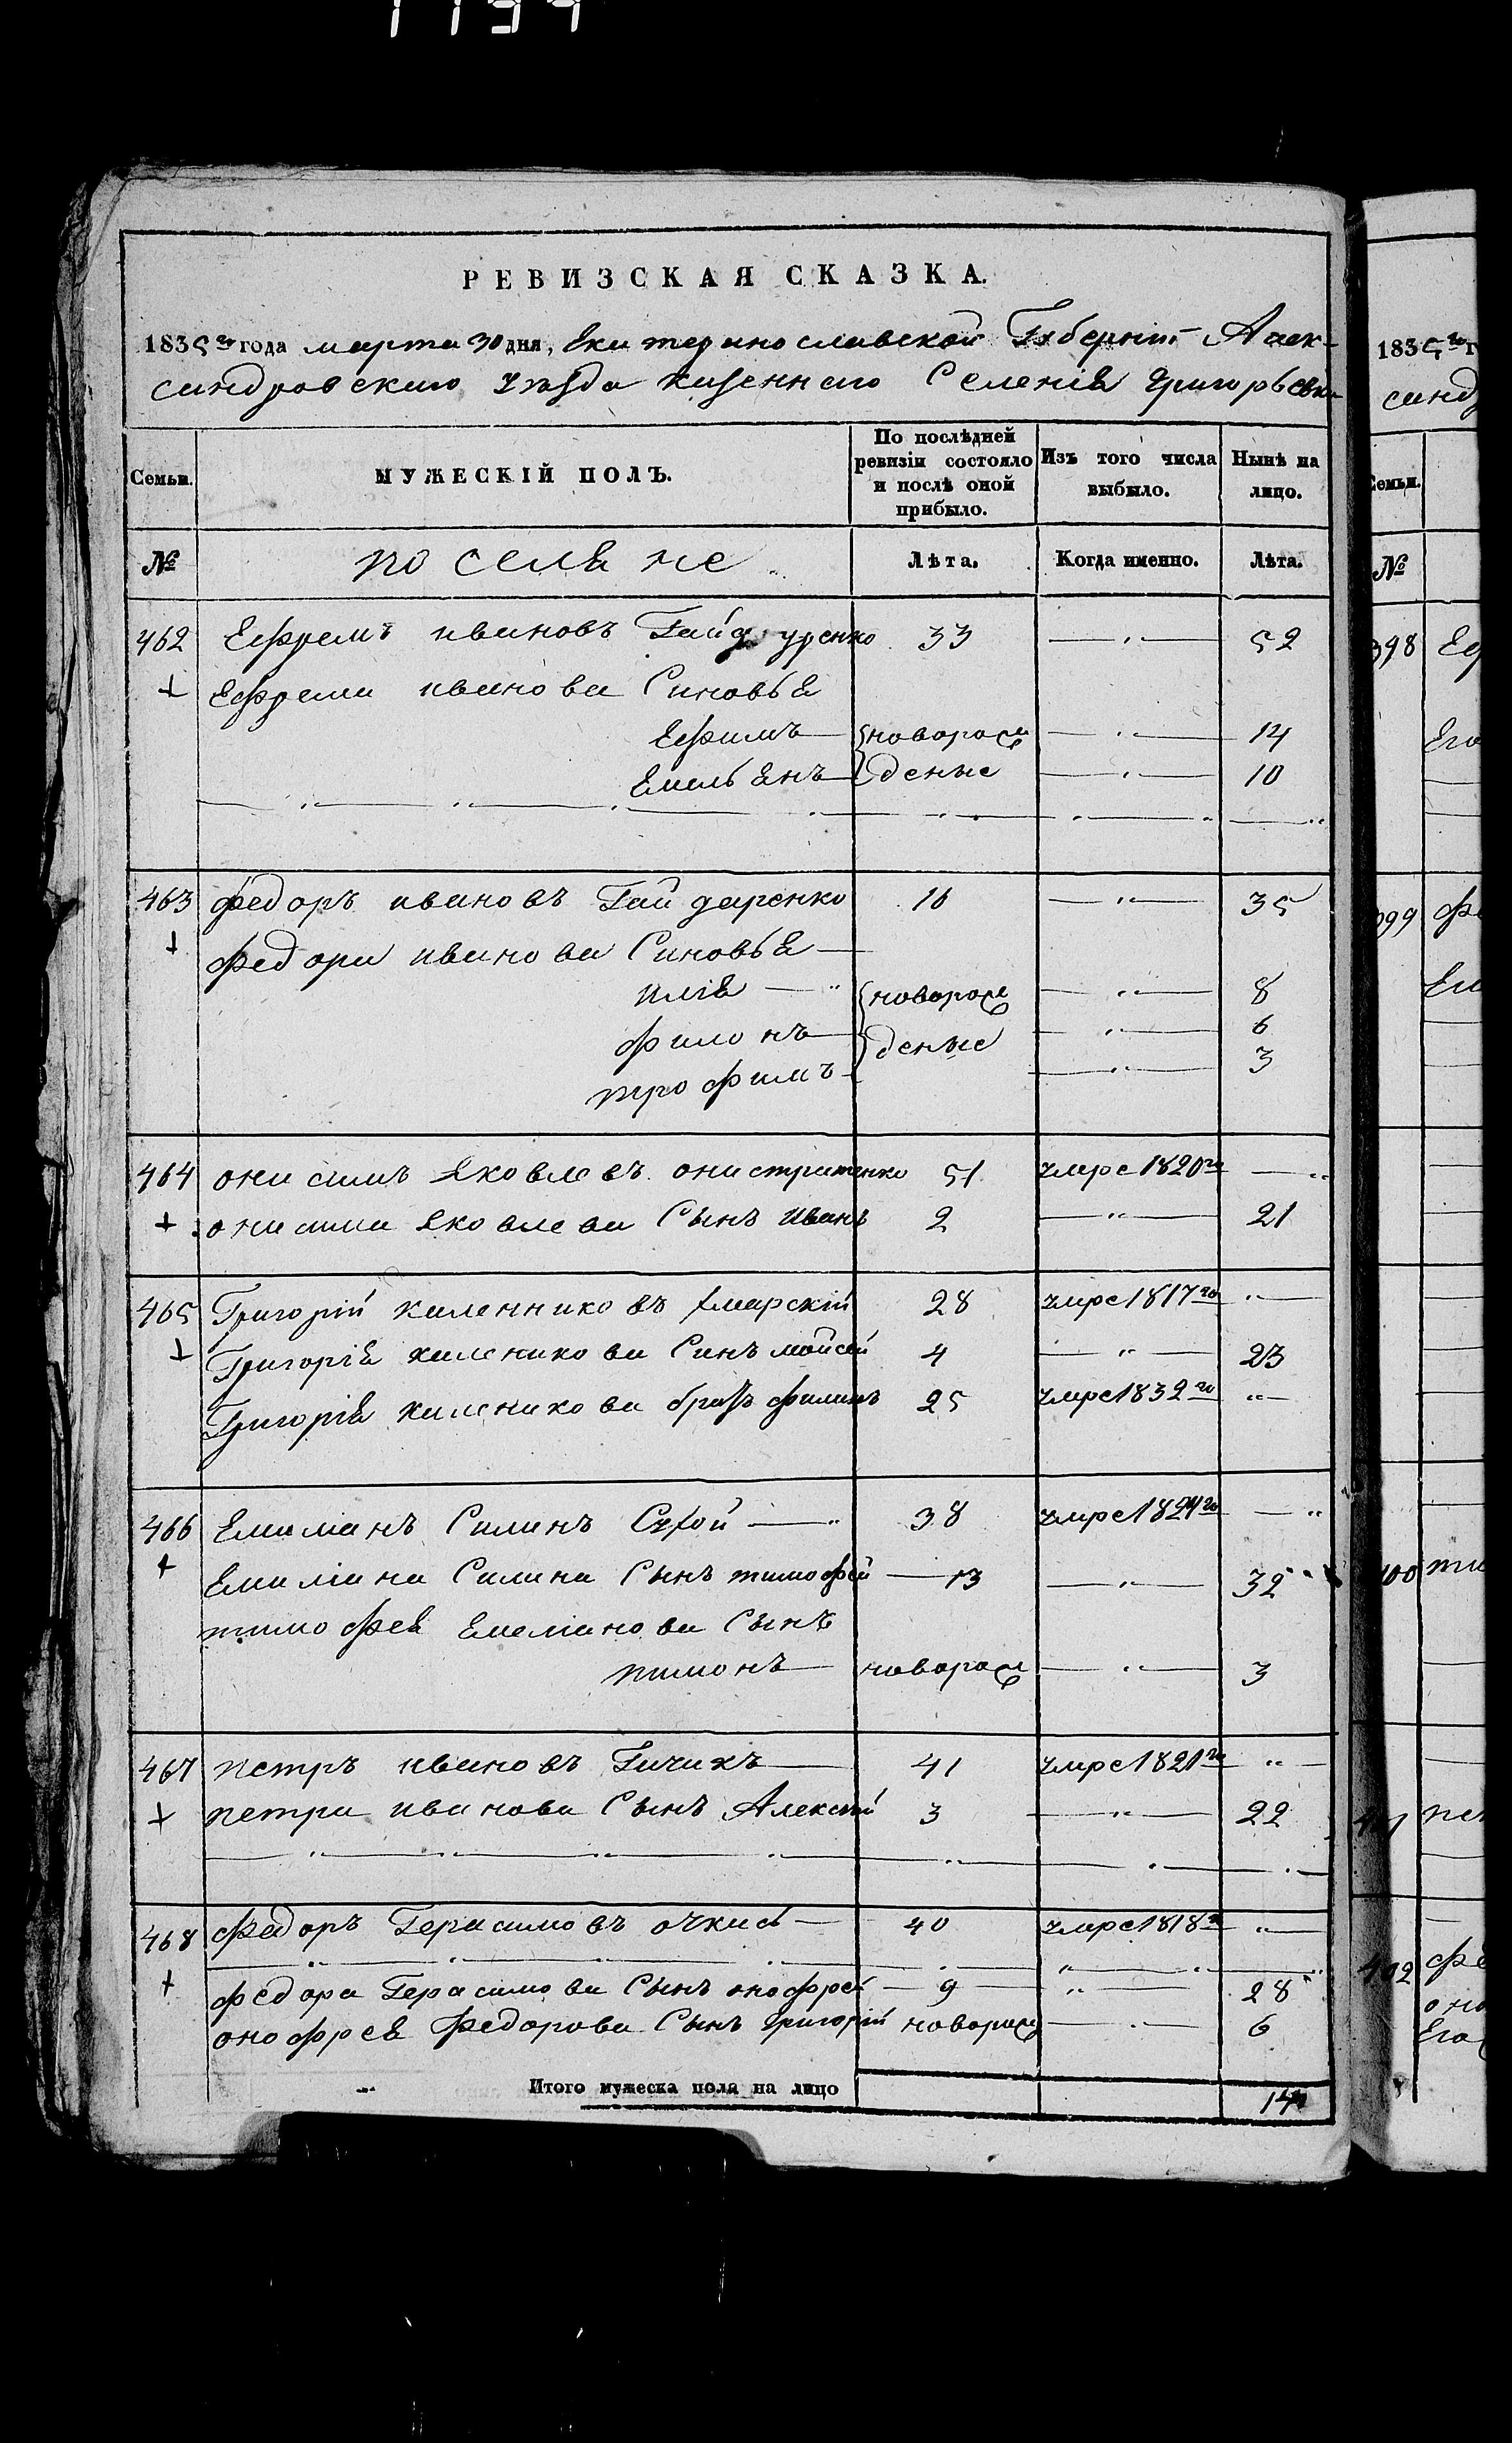 РЕВИЗСКАЯ СКАЗКА.
1835го года марта 30 дня, Екатеринославской Губерніи Алек-
сандровскаго уезда казеннаго Селенія Григорьевки
Семьи.
МУЖЕСКІЙ ПОЛЪ.
По послѣдней ревизіи состояло и послѣ оной прибыло.
Изъ того числа выбыло.
Нынѣ на лицо.
№ поселяне Лѣта. Когда именно. Лѣта.
462 Ефремъ ивановъ Гайдуренко 33 — " — 52
+ Ефрема иванова Синовья
Ефимъ — новорож — " — 14
Емельянъ — деные — " — 10
463 федоръ ивановъ Гайдаренко 16 — " — 35
+ федора иванова Синовья —
илія — " новорож — " — 8
филонъ — деные — " — 6
трофимъ — — " — 3
464 онисимъ яковлевъ онистратенко 51 умре 1820го — "
+ онисима яковлева Сынъ иванъ 2 — " — 21
465 Григорій каленниковъ хмарскій 28 умре 1817го " —
+ Григорія каленикова Синъ мойсей 4 — " — 23
Григорія каленикова братъ филипъ 25 умре 1832го " —
466 Емилианъ Силинъ Сухой — " 38 умре 1824го — "
+ Емиліана Силина Сынъ тимофей — 13 — " — 32
тимофея Емеліанова Сынъ
пимонъ — новорож — " — 3
467 петръ ивановъ Гичихъ — 41 умре 1821го " —
+ петра иванова Сынъ Алексѣй 3 — " — 22
468 федоръ Герасимовъ — 40 умре 1818го " —
+ федора Герасимова Сынъ онофрей — 9 — " — 28
онофрея федорова Сынъ Григорій новорож — " — 6
Итого мужеска пола на лицо
1835го г
санд
Семьи.
№
398 Еф
Его
399 фе
Ег
400 ти
пет
402 фе
оно
Его